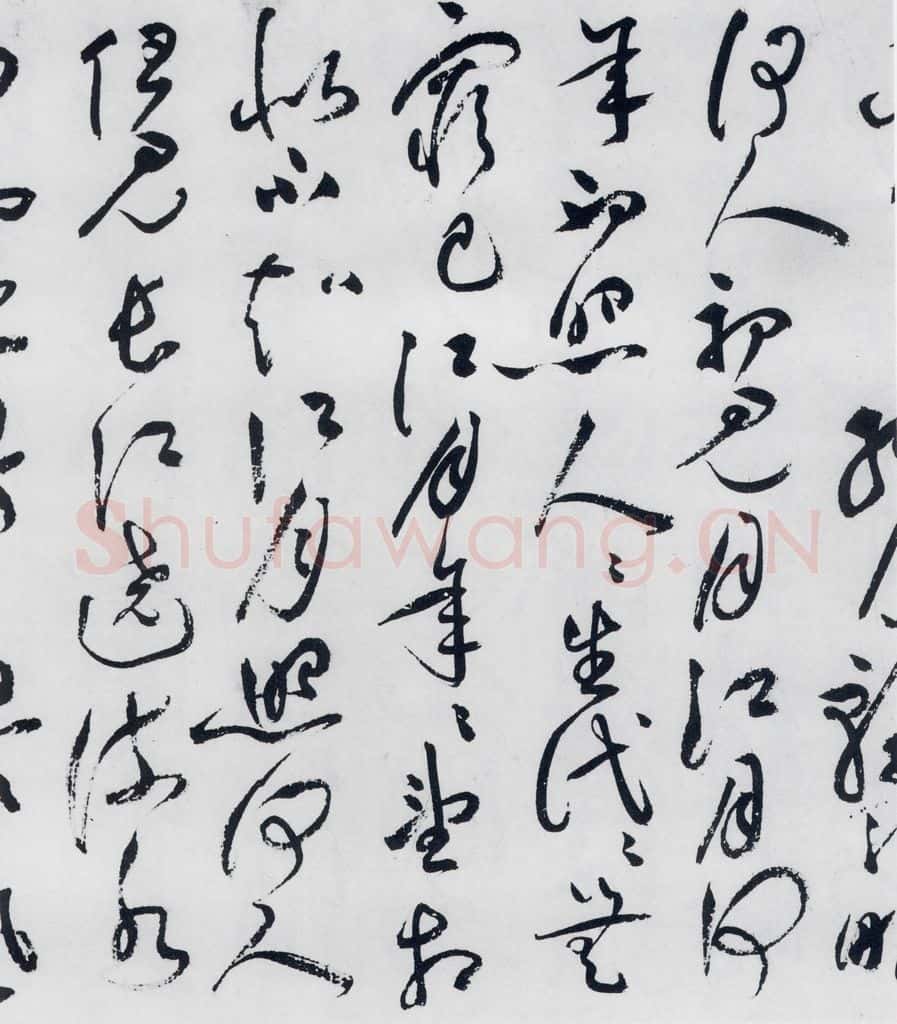 何人初見月江月何
年初照人〻生代〻無
窮已江月年〻望相
似不知江月照何人
但見長江送流水
Shufawang.CN